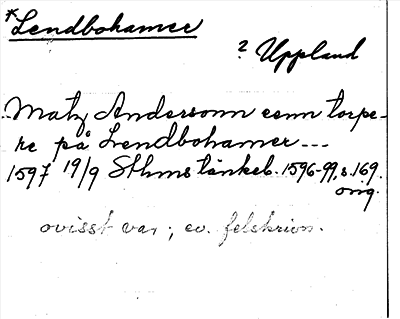 *Lendbohamer
? Uppland
Matz Andersonn eenn torpe-
re på Lendbohamer---
1597 19/9 Sthms tänkeb. 1596-99, s. 169.
orig.
ovisst var; ev. felskrivn.